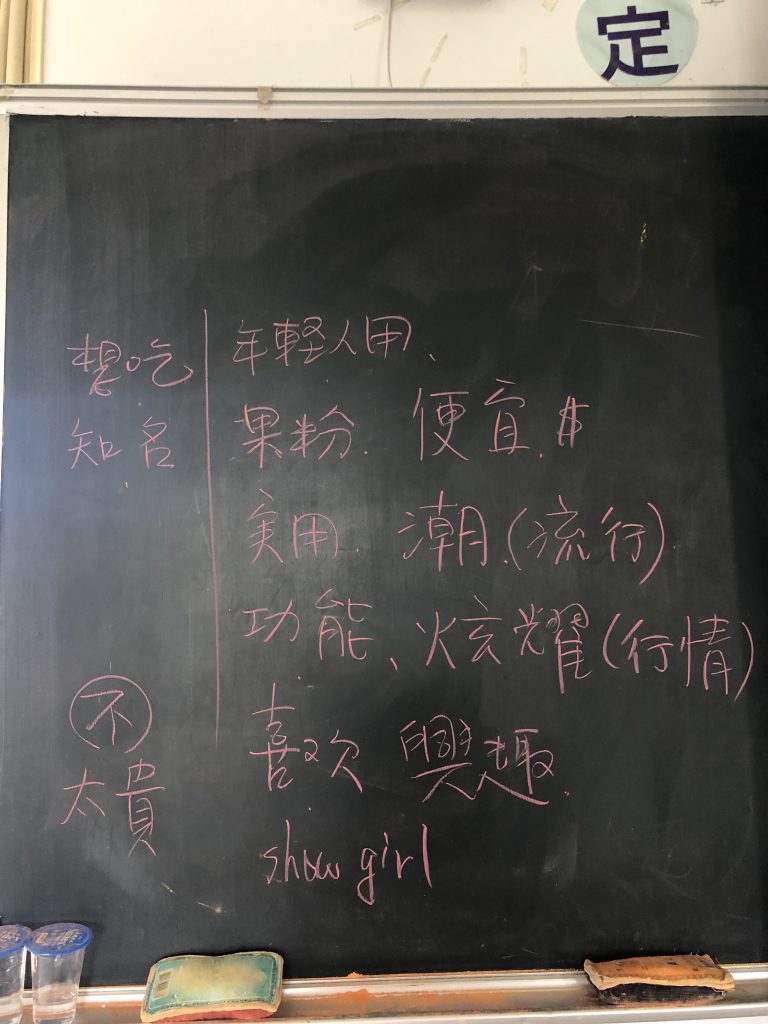 定
想吃
知名
不
太貴
年輕人用、
果粉. 便宜.$
実用. 潮.(流行)
功能、炫耀(行情)
喜欢 興趣.
show girl